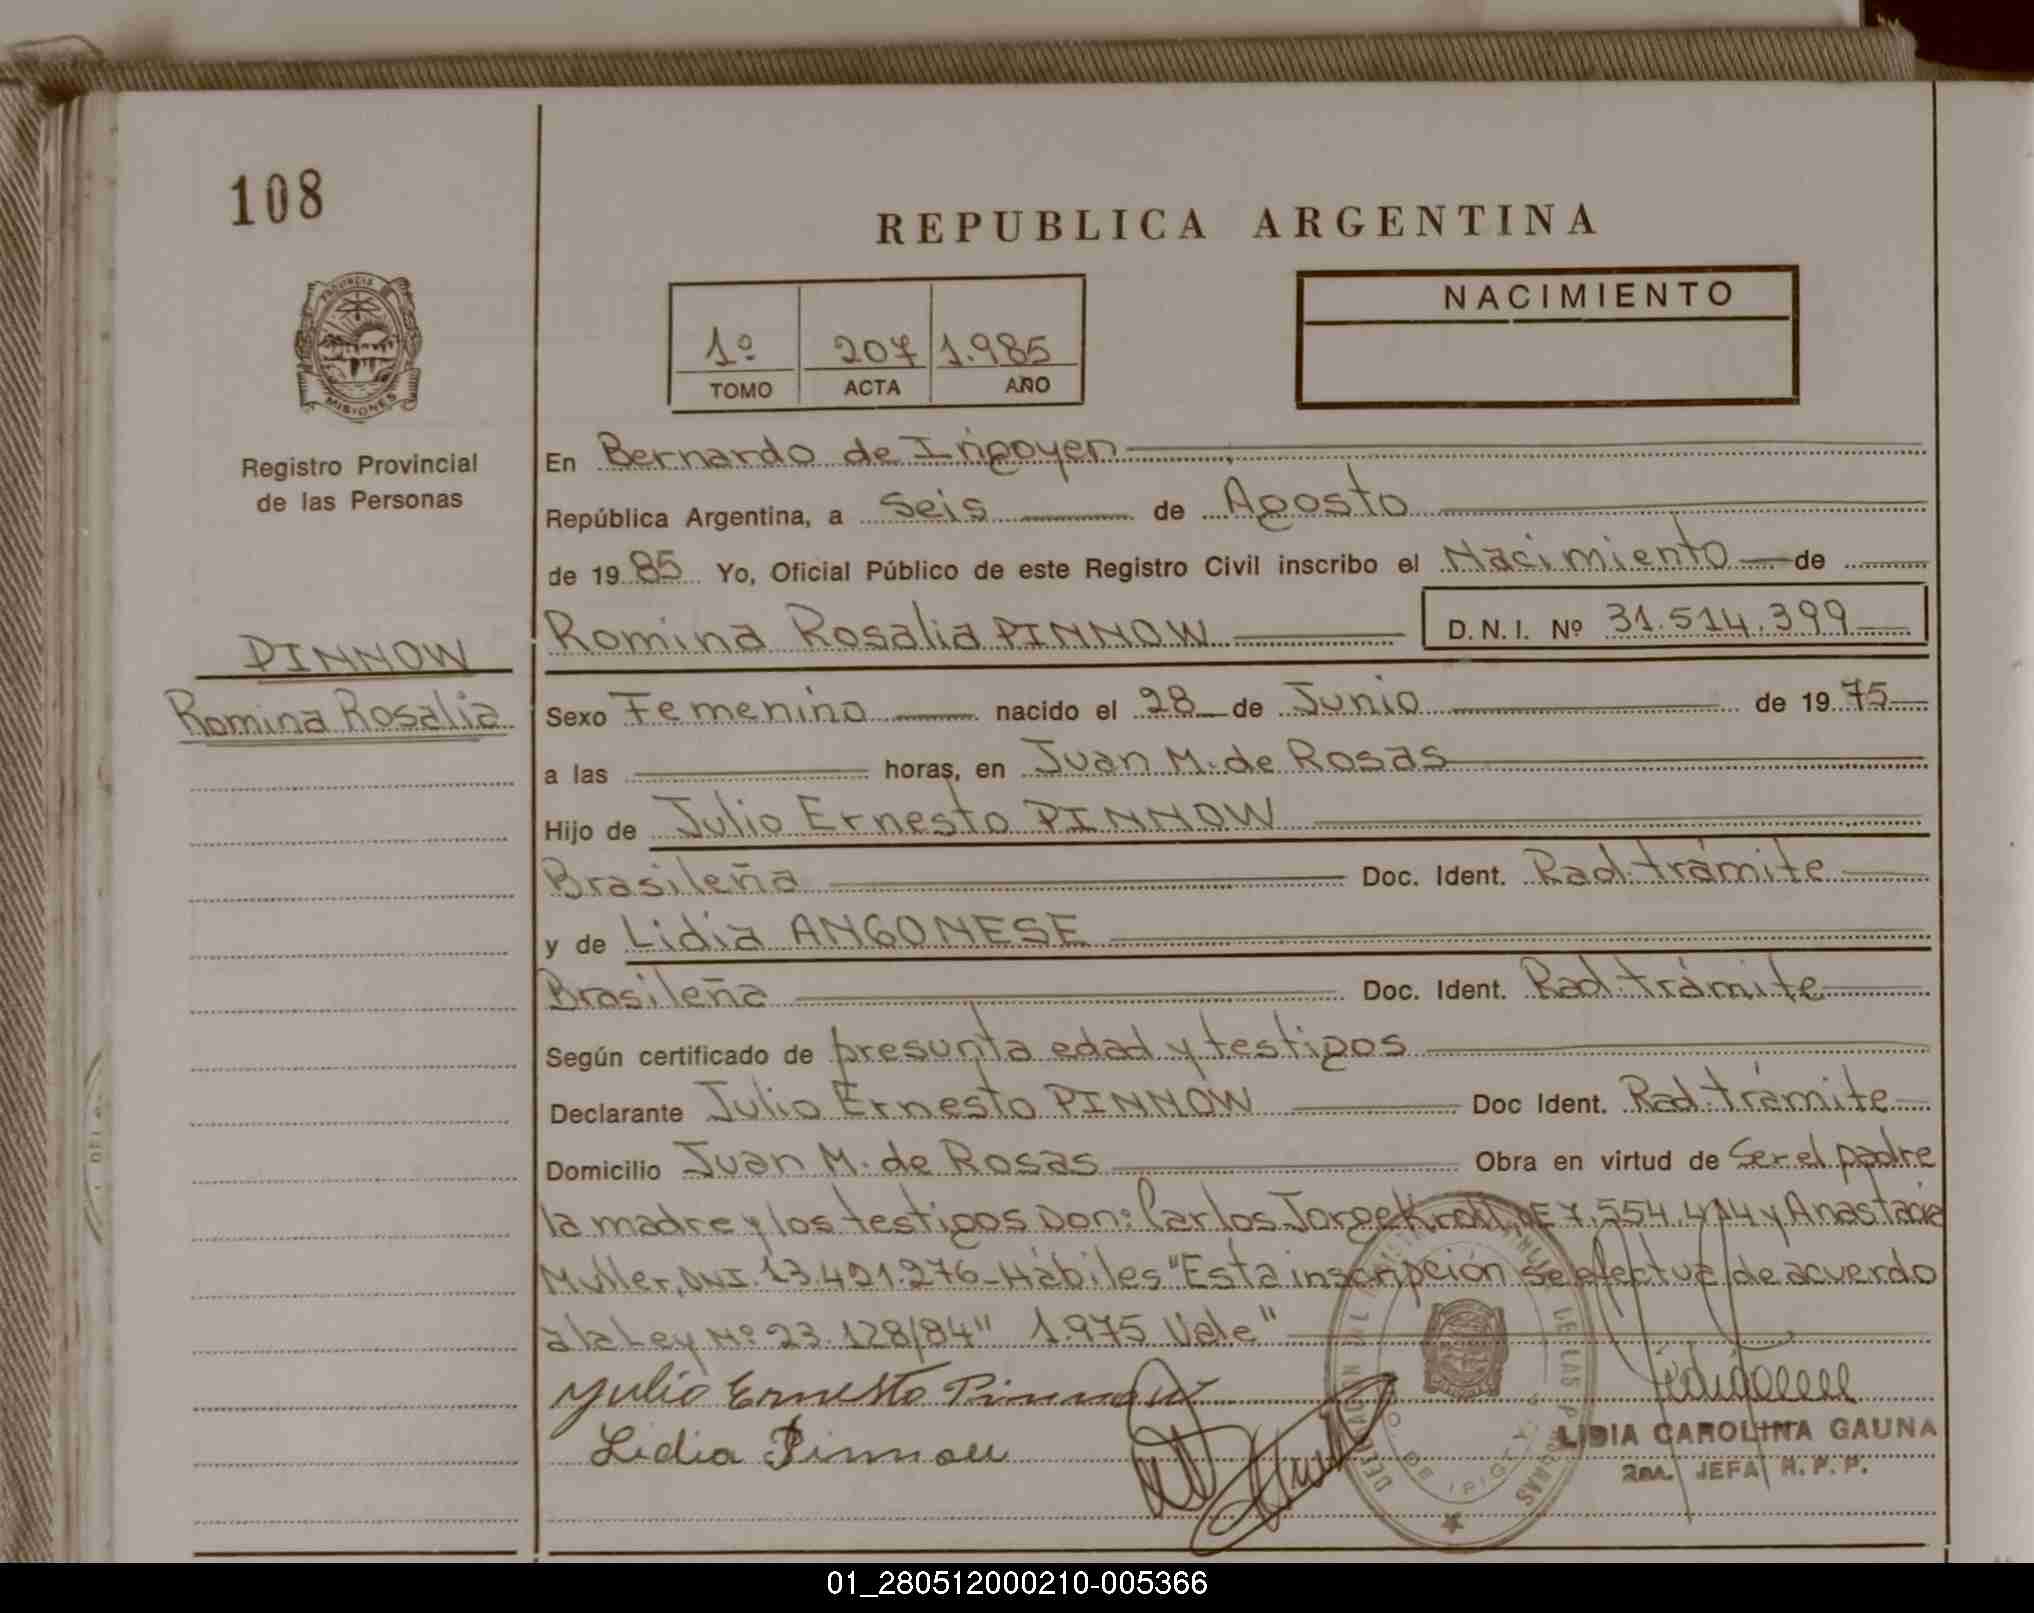 108
REPUBLICA ARGENTINA
PROVINCIA DE
MISIONES
Registro Provincial
de las Personas
1º 207 1.985
TOMO ACTA AÑO
NACIMIENTO
En Bernardo de Irigoyen
República Argentina, a Seis de Agosto
de 1985 Yo, Oficial Público de este Registro Civil inscribo el Nacimiento de
Romina Rosalia PINNOW D.N.I. Nº 31.514.399
PINNOW
Romina Rosalia
Sexo Femenino nacido el 28 de Junio de 1975
a las horas, en Juan M. de Rosas
Hijo de Julio Ernesto PINNOW
Brasileña Doc. Ident. Rad. trámite
y de Lidia ANGONESE
Brasileña Doc. Ident. Rad. trámite
Según certificado de presunta edad y testigos
Declarante Julio Ernesto PINNOW Doc Ident. Rad. trámite
Domicilio Juan M. de Rosas Obra en virtud de Ser el padre
la madre y los testigos Don: Carlos Jorge 7.554.414 y Anastacia
Muller, DNI. 13.421.276-Hábiles "Esta inscripción se efectua de acuerdo
a la Ley Nº 23.128/84" 1.975 Vale"
Julio Ernesto Pinnow
Lidia Pinnow
LIDIA CAROLINA GAUNA
2DA. JEFA R. P. P.
01_280512000210-005366